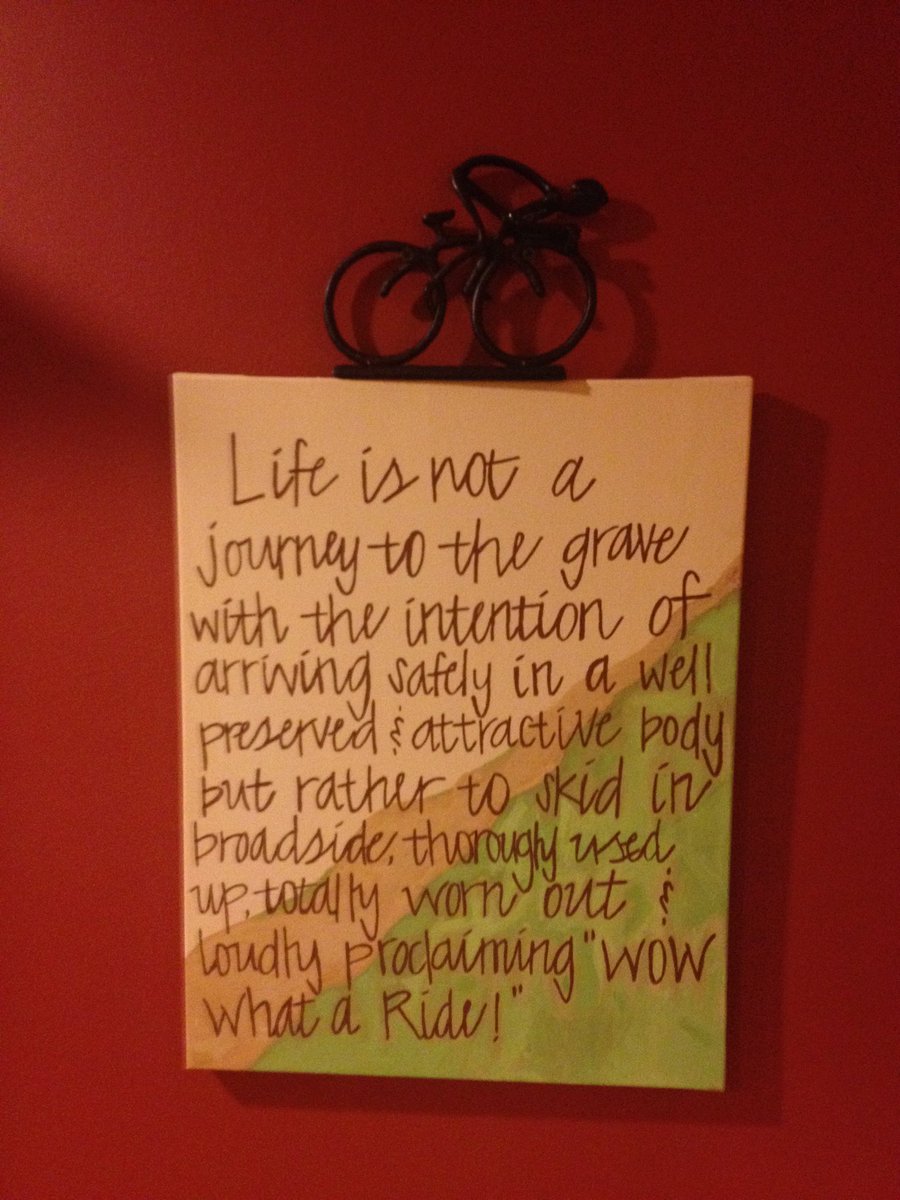 Life is not a
journey to the grave
with the intention of
arriving safely in a well
preserved & attractive body
but rather to skid in
broadside, thorougly used
up, totally worn out &
loudly proclaiming "WOW
What a Ride!"